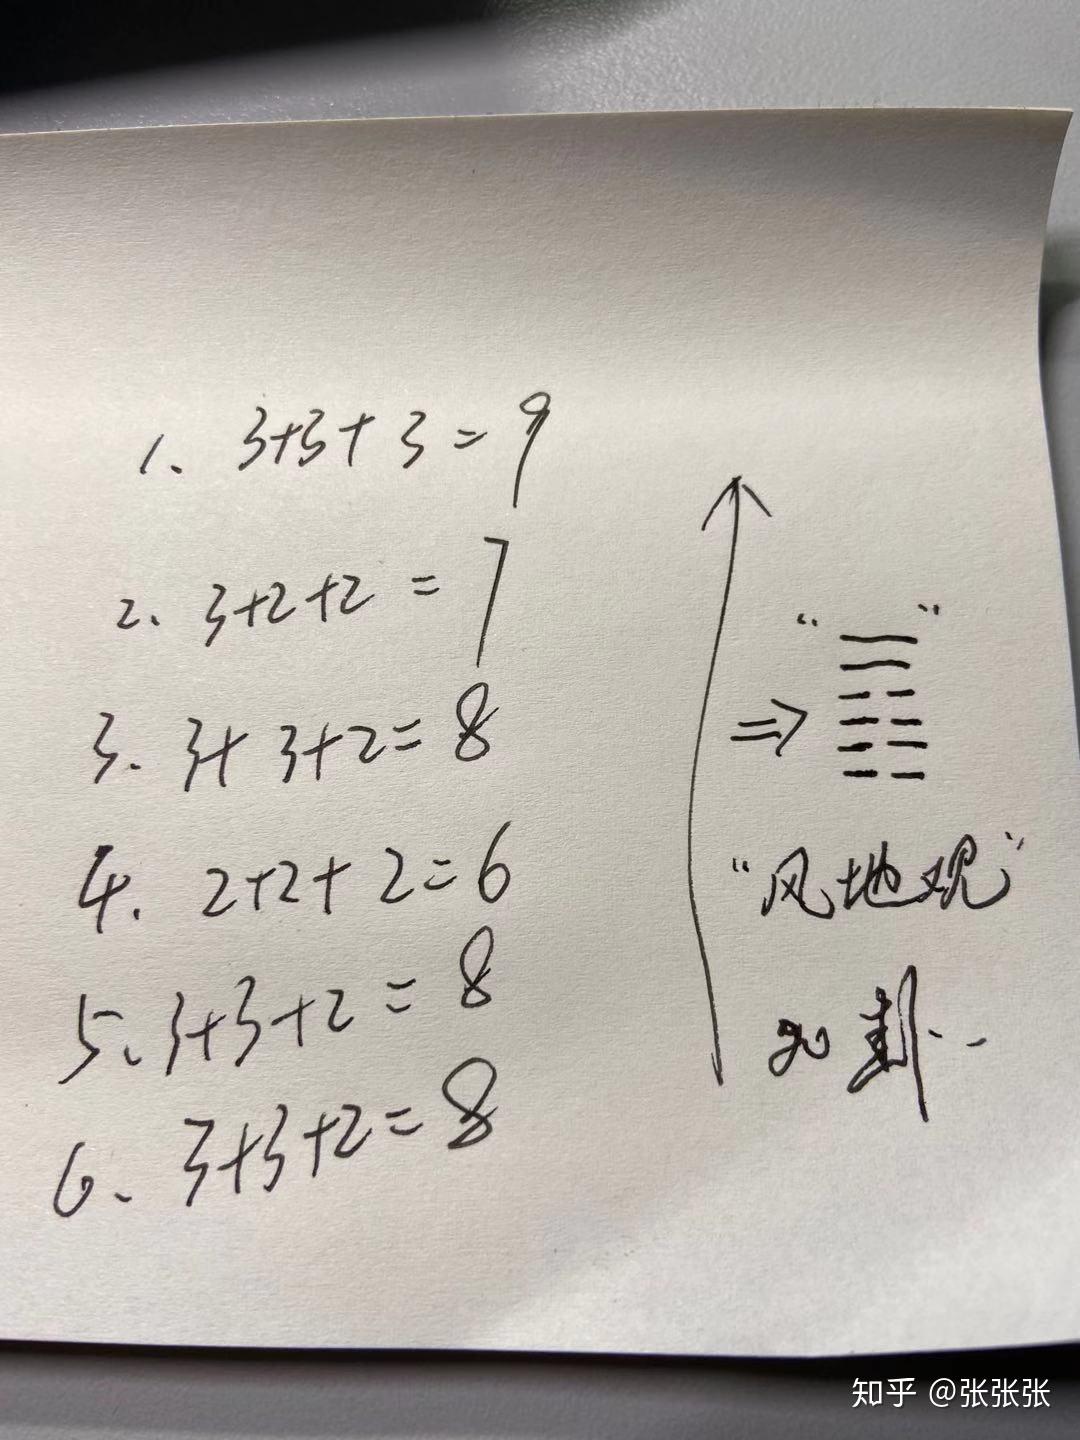 1、3+3+3=9
2、3+2+2=7
3.3+3+2=8
4.2+2+2=6
5、3+3+2=8
6、3+3+2=8
⇒
“风地观”
卦..
知乎 @张张张